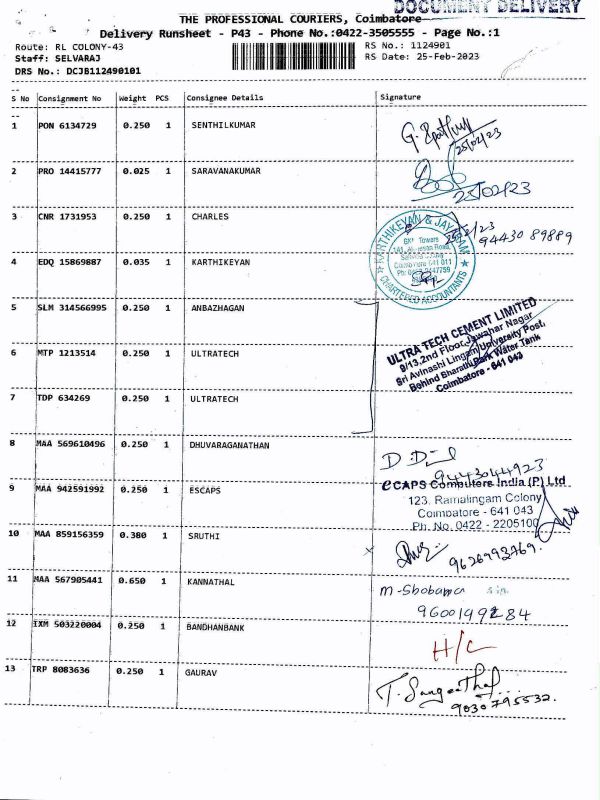 DOCUMENT DELIVERY
THE PROFESSIONAL COURIERS, Coimbatore
Delivery Runsheet - P43 - Phone No.:0422-3505555 - Page No.:1
Route: RL COLONY-43
RS No.: 1124901
Staff: SELVARAJ
RS Date: 25-Feb-2023
DRS No.: DCJB112490101
S No Consignment No Weight PCS Consignee Details Signature
1 PON 6134729 0.250 1 SENTHILKUMAR
25/02/23
2 PRO 14415777 0.025 1 SARAVANAKUMAR
25/02/23
3 CNR 1731953 0.250 1 CHARLES
94430 89889
KARTHIKEYAN & JAYARAM
CHARTERED ACCOUNTANTS
4 EDQ 15869887 0.035 1 KARTHIKEYAN
5 SLM 314566995 0.250 1 ANBAZHAGAN
ULTRA TECH CEMENT LIMITED
9/13,2nd Floor,Jawahar Nagar
Sri Avinashi Lingam University Post,
Behind Bharathi Park Water Tank
Coimbatore - 641 043
6 MTP 1213514 0.250 1 ULTRATECH
7 TDP 634269 0.250 1 ULTRATECH
8 MAA 569610496 0.250 1 DHUVARAGANATHAN
9443044923
9 MAA 942591992 0.250 1 ESCAPS
eCAPS Computers India (P) Ltd
123, Ramalingam Colony
Coimbatore - 641 043
Ph. No. 0422 - 2205100
10 MAA 859156359 0.380 1 SRUTHI
9626993769.
11 MAA 567905441 0.650 1 KANNATHAL
M-Shobana
9600199284
12 IXM 503220004 0.250 1 BANDHANBANK
H/C
13 TRP 8083636 0.250 1 GAURAV
9030795532.